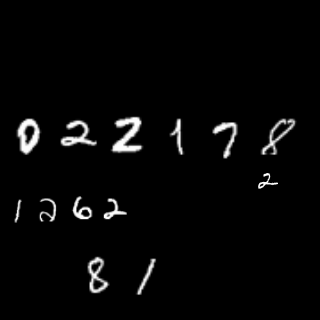 022178
2
1262
81